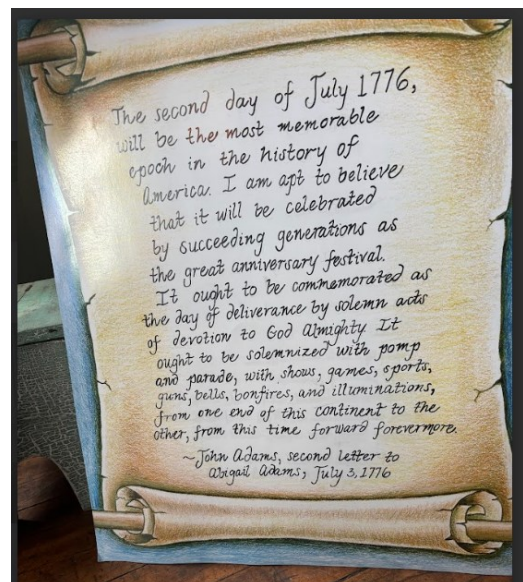 The second day of July 1776,
will be the most memorable
epoch in the history of
America. I am apt to believe
that it will be celebrated
by succeeding generations as
the great anniversary festival.
It ought to be commemorated as
the day of deliverance by solemn acts
of devotion to God Almighty It
ought to be solemnized with pomp
and parade, with shows, games, sports,
guns, bells, bonfires, and illuminations,
from one end of this continent to the
other, from this time forward forevermore.
~John Adams, second letter to
Abigail Adams, July 3, 1776